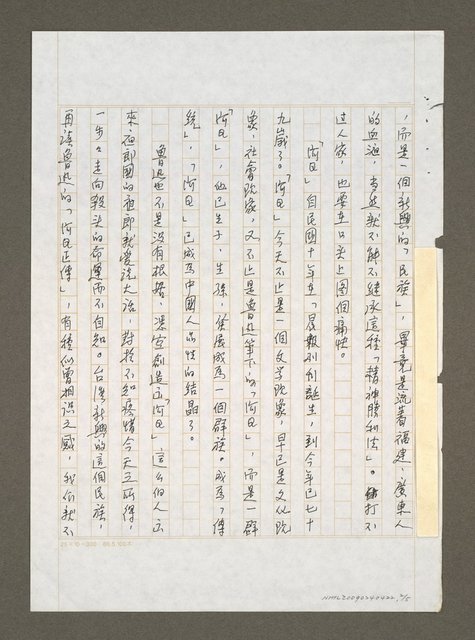 ，而是一個新興的「民族」，畢竟是流着福建、廣東人
的血液，當然就不能不繼承這種「精神勝利法」。打不
过人家，也要在口头上圖個痛快。
「阿Q」自民國十年在「晨報副刊」誕生，到今年已七十
九歲了。「阿Q」今天不止是一個文学現象，早已是文化現
象、社會現象，又不止是魯迅筆下的「阿Q」，而是一群
「阿Q」，他已生子、生孫，發展成為一個群族。成為「傳
統」，「阿Q」已成為中國人品性的結晶了。
魯迅也不是沒有根據，憑空創造出「阿Q」這么個人
來，夜郎國的夜郎就愛說大話，對於不知
一步々走向殺头的命運而不自知。台灣新興的這個民族，
再讀魯迅的「阿Q正傳」，有種似曾相識之感，我們就不
25×12=300
NMTL20090240422, 2/5